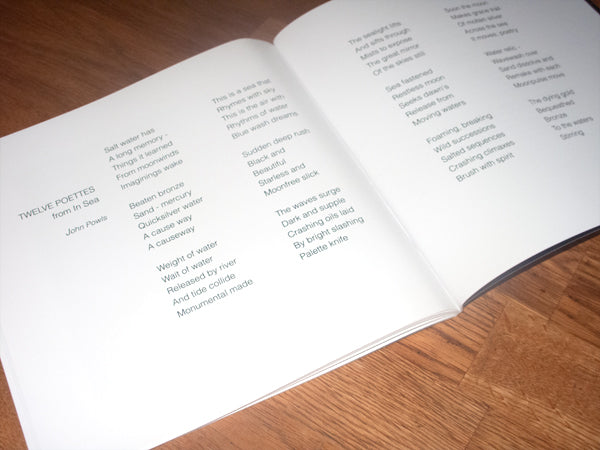 TWELVE POETTES
from In Sea
John Powls
Salt water has
A long memory -
Things it learned
From moonwinds
Imaginings wake
Beaten bronze
Sand - mercury
Quicksilver water
A cause way
A causeway
Weight of water
Wait of water
Released by river
And tide collide
Monumental made
This is a sea that
Rhymes with sky
This is the air with
Rhythms of water
Blue wash dreams
Sudden deep rush
Black and
Beautiful
Starless and
Moonfree slick
The waves surge
Dark and supple
Crashing oils laid
By bright slashing
Palette knife
The sealight lifts
And sifts through
Mists to expose
The great mirror
Of the skies still
Sea fastened
Restless moon
Seeks dawn's
Release from
Moving waters
Foaming, breaking
Wild successions
Salted sequences
Crashing climaxes
Brush with spirit
Soon the moon
Makes grace trail
Of molten silver
Across the sea
It moves, poetry
Water relic -
Wavewash over
Sand dissolve and
Remake with each
Moonpulse move
The dying gold
Bequeathed
Bronze
To the waters
Stirring